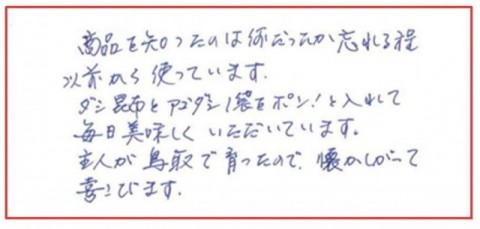 商品を知ったのは何だったか忘れる程
以前から使っています.
ダシ昆布とアゴダシ1袋をポン!と入れて
毎日美味しくいただいています。
主人が鳥取で育ったので、懐かしがって
喜びます.